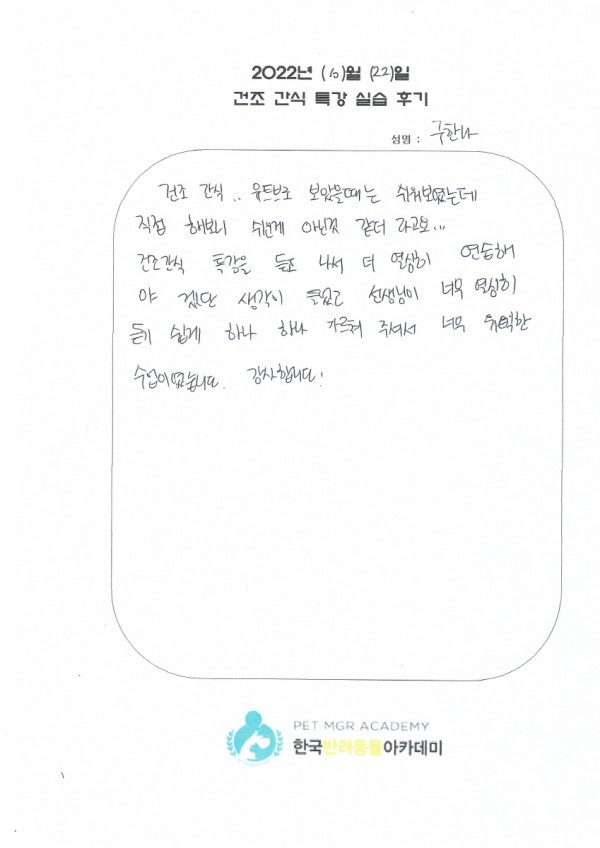 2022년 (10)월 (22)일
건조 간식 특강 실습 후기
성명 : 구한나
건조 간식.. 유트브로 보았을때는 쉬워보였는데
직접 해보니 쉬운게 아닌것 같더 라고요...
건조간식 특강을 듣고 나서 더 열심히 연습해
야 겠단 생각이 들었고 선생님이 너무 열심히
듣기 쉽게 하나 하나 가르쳐 주셔서 너무 유익한
수업이었습니다. 감사합니다!
PET MGR ACADEMY
한국반려동물아카데미